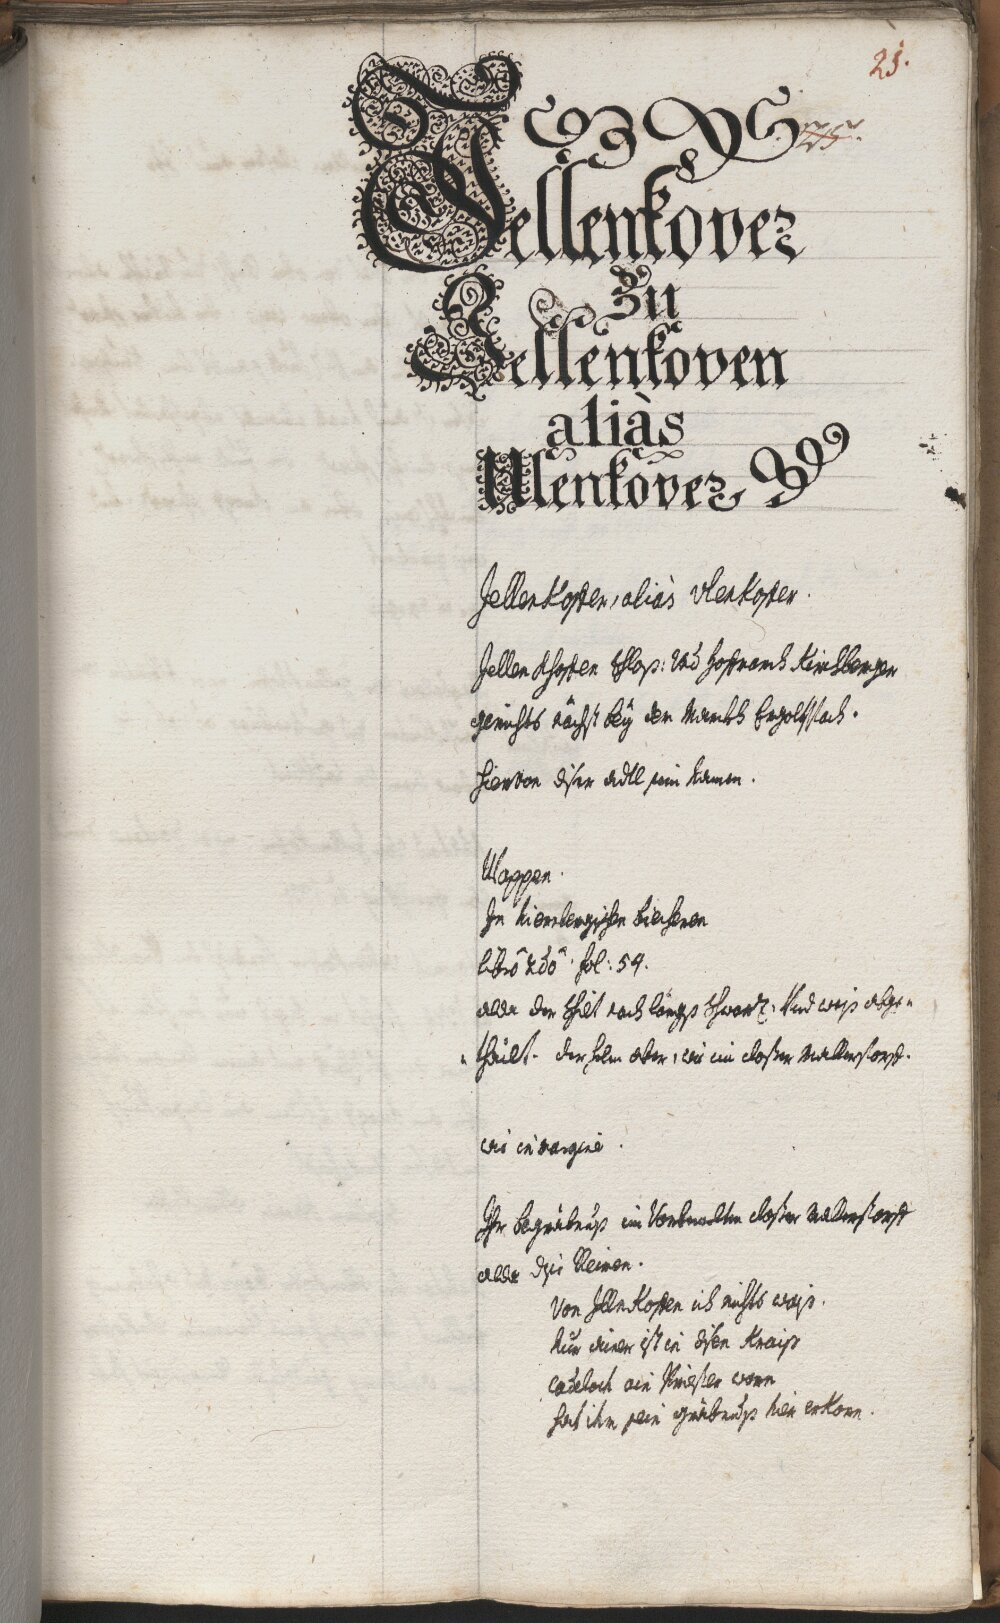 25.
Jellenkover
Zu
Jellenkoven
aliàs
Ulenkover
Jellenkofer, aliàs Ulenkofer.
Jellenkhofen Schloß: und hofmarch Kirchberger
gerichts nächst beÿ dem Marckh Ergoltspach.
hiervon diser adll sein Namen.
Wappen.
In hierbergischen biecheren
librô 2dô fol: 54.
alda der Schilt nach längß Schwartz. Und weiß abge=
=thailt. der helm aber, wie im closter Mallerstorff.
wie in margine.
Ihr begräbnuß im Vorbemelten closter Mallerstorff
alda dise Reimen.
Von Jellnkofen ich nichts waiß.
Nur ainer ist in disen Kraiß
ein Priester worn
hat ihm sein gräbnuß hier erkorn.